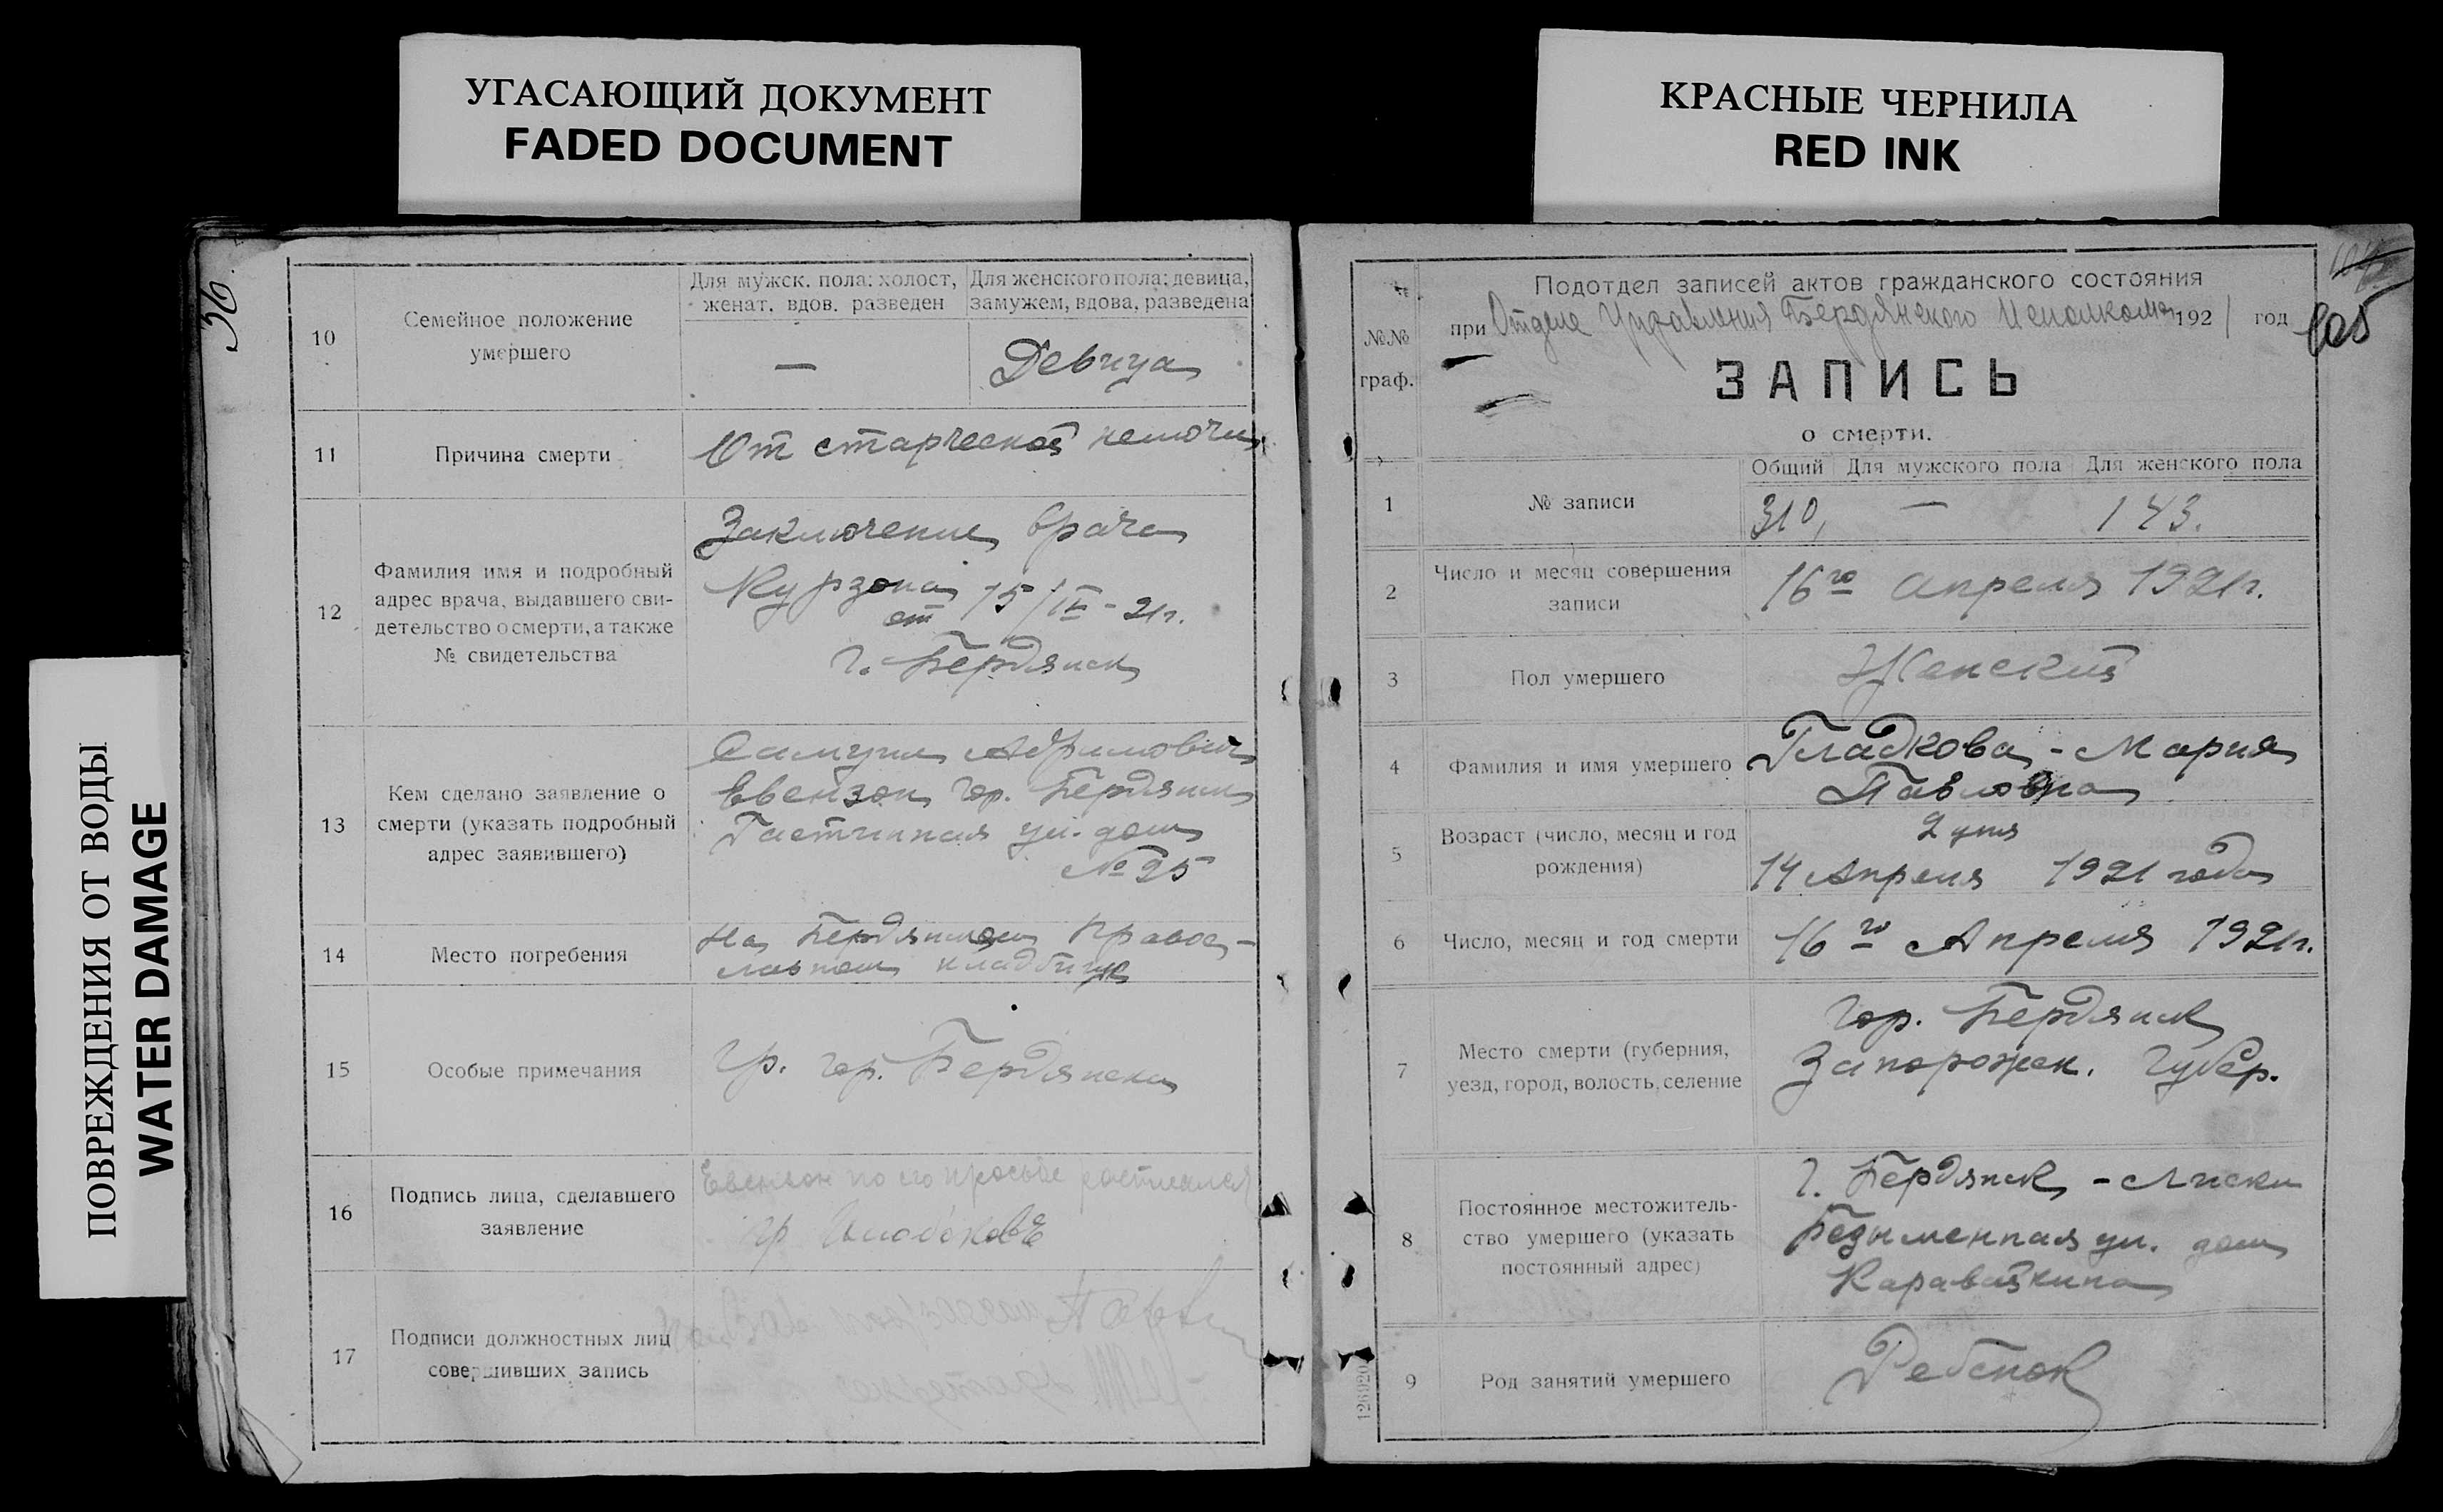 УГАСАЮЩИЙ ДОКУМЕНТ
FADED DOCUMENT
КРАСНЫЕ ЧЕРНИЛА
RED INK
ПОВРЕЖДЕНИЯ ОТ ВОДЫ
WATER DAMAGE
36.
10
Семейное положение
умершего
Для мужск. пола: холост,
женат, вдов, разведен
Для женского пола: девица,
замужем, вдова, разведена
—
Девица
11
Причина смерти
От старческой немочи
12
Фамилия имя и подробный
адрес врача, выдавшего сви-
детельство о смерти, а также
№ свидетельства
Заключение врача
Курзона
от 15/IV - 21г.
г. Бердянск
13
Кем сделано заявление о
смерти (указать подробный
адрес заявившего)
Самуил
Евензон гор. Бердянск
ул. дом
№ 25
14
Место погребения
На Бердянском Правос-
лавном кладбище
15
Особые примечания
гр. гор. Бердянска
16
Подпись лица, сделавшего
заявление
Евензон по его просьбе расписался
гр
17
Подписи должностных лиц
совершивших запись
№№
граф.
Подотдел записей актов гражданского состояния
при Отделе Управления Бердянского Исполкома 1921 год
ЗАПИСЬ
о смерти.
1
№ записи
Общий Для мужского пола Для женского пола
310, — 143.
2
Число и месяц совершения
записи
16го Апреля 1921г.
3
Пол умершего
Женский
4
Фамилия и имя умершего
Гладкова - Мария
Павловна
5
Возраст (число, месяц и год
рождения)
2 дня
14 Апреля 1921 года
6
Число, месяц и год смерти
16го Апреля 1921г.
7
Место смерти (губерния,
уезд, город, волость, селение
Гор. Бердянск
Запорожск. Губер.
8
Постоянное местожитель-
ство умершего (указать
постоянный адрес)
г. Бердянск - Лиски
Безыменная ул. дом
Каравайкина
9
Род занятий умершего
Ребенок
126920